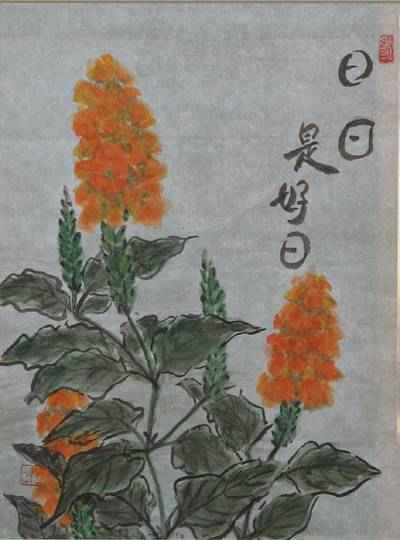 日日
是好日